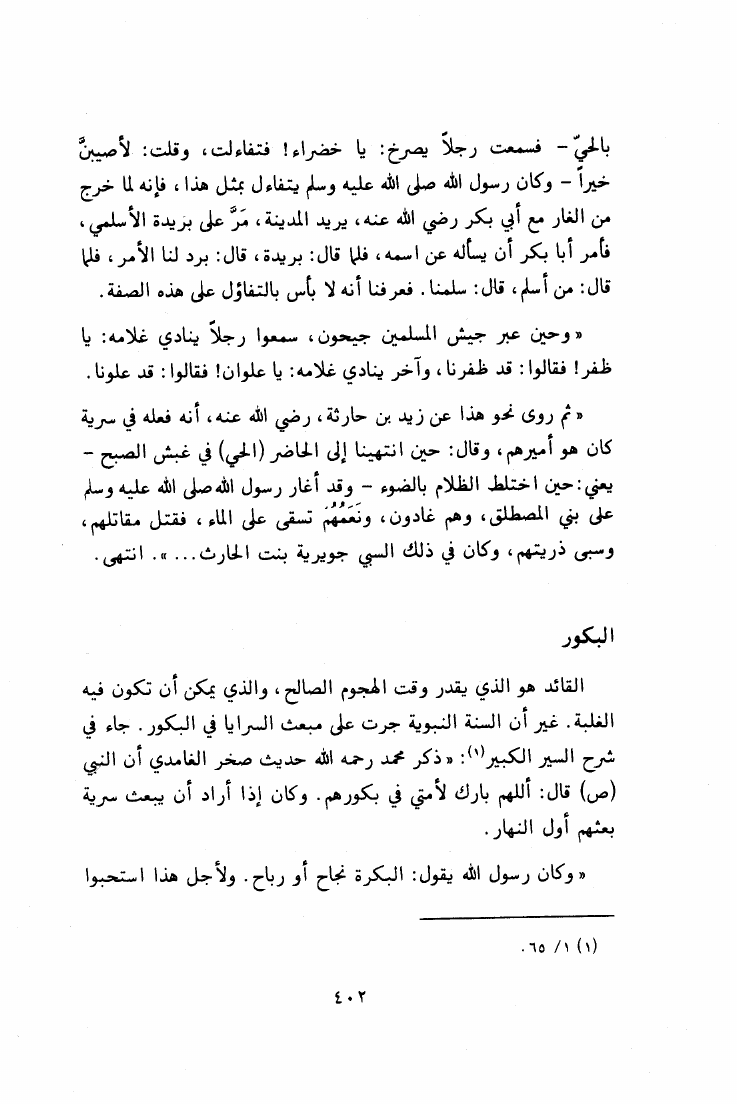 بالحيّ - فسمعت رجلاً يصرخ: يا خضراء! فتفاءلت، وقلت: لأصيبنَّ
خيراً - وكان رسول الله صلى الله عليه وسلم يتفاءل بمثل هذا، فإنه لما خرج
من الغار مع أبي بكر رضي الله عنه، يريد المدينة، مَرَّ على بريدة الأسلمي،
فأمر أبا بكر أن يسأله عن اسمه، فلما قال: بريدة، قال: برد لنا الأمر، فلما
قال: من أسلم، قال: سلمنا. فعرفنا أنه لا بأس بالتفاؤل على هذه الصفة.
«وحين عبر جيش المسلمين جيحون، سمعوا رجلاً ينادي غلامه: يا
ظفر! فقالوا: قد ظفرنا، وآخر ينادي غلامه: يا علوان! فقالوا: قد علونا.
«ثم روى نحو هذا عن زيد بن حارثة، رضي الله عنه، أنه فعله في سرية
كان هو أميرهم، وقال: حين انتهينا إلى الحاضر (الحي) في غبش الصبح -
يعني: حين اختلط الظلام بالضوء - وقد أغار رسول الله صلى الله عليه وسلم
على بني المصطلق، وهم غادون، ونَعَمُهُمْ تسقى على الماء، فقتل مقاتلهم،
وسبى ذريتهم، وكان في ذلك السبي جويرية بنت الحارث...». انتهى.
البكور
القائد هو الذي يقدر وقت الهجوم الصالح، والذي يمكن أن تكون فيه
الغلبة. غير أن السنة النبوية جرت على مبعث السرايا في البكور. جاء في
شرح السير الكبير(١): «ذكر محمد رحمه الله حديث صخر الغامدي أن النبي
(ص) قال: أللهم بارك لأمتي في بكورهم. وكان إذا أراد أن يبعث سرية
بعثهم أول النهار.
«وكان رسول الله يقول: البكرة نجاح أو رباح. ولأجل هذا استحبوا
(١) ١/ ٦٥.
٤٠٢